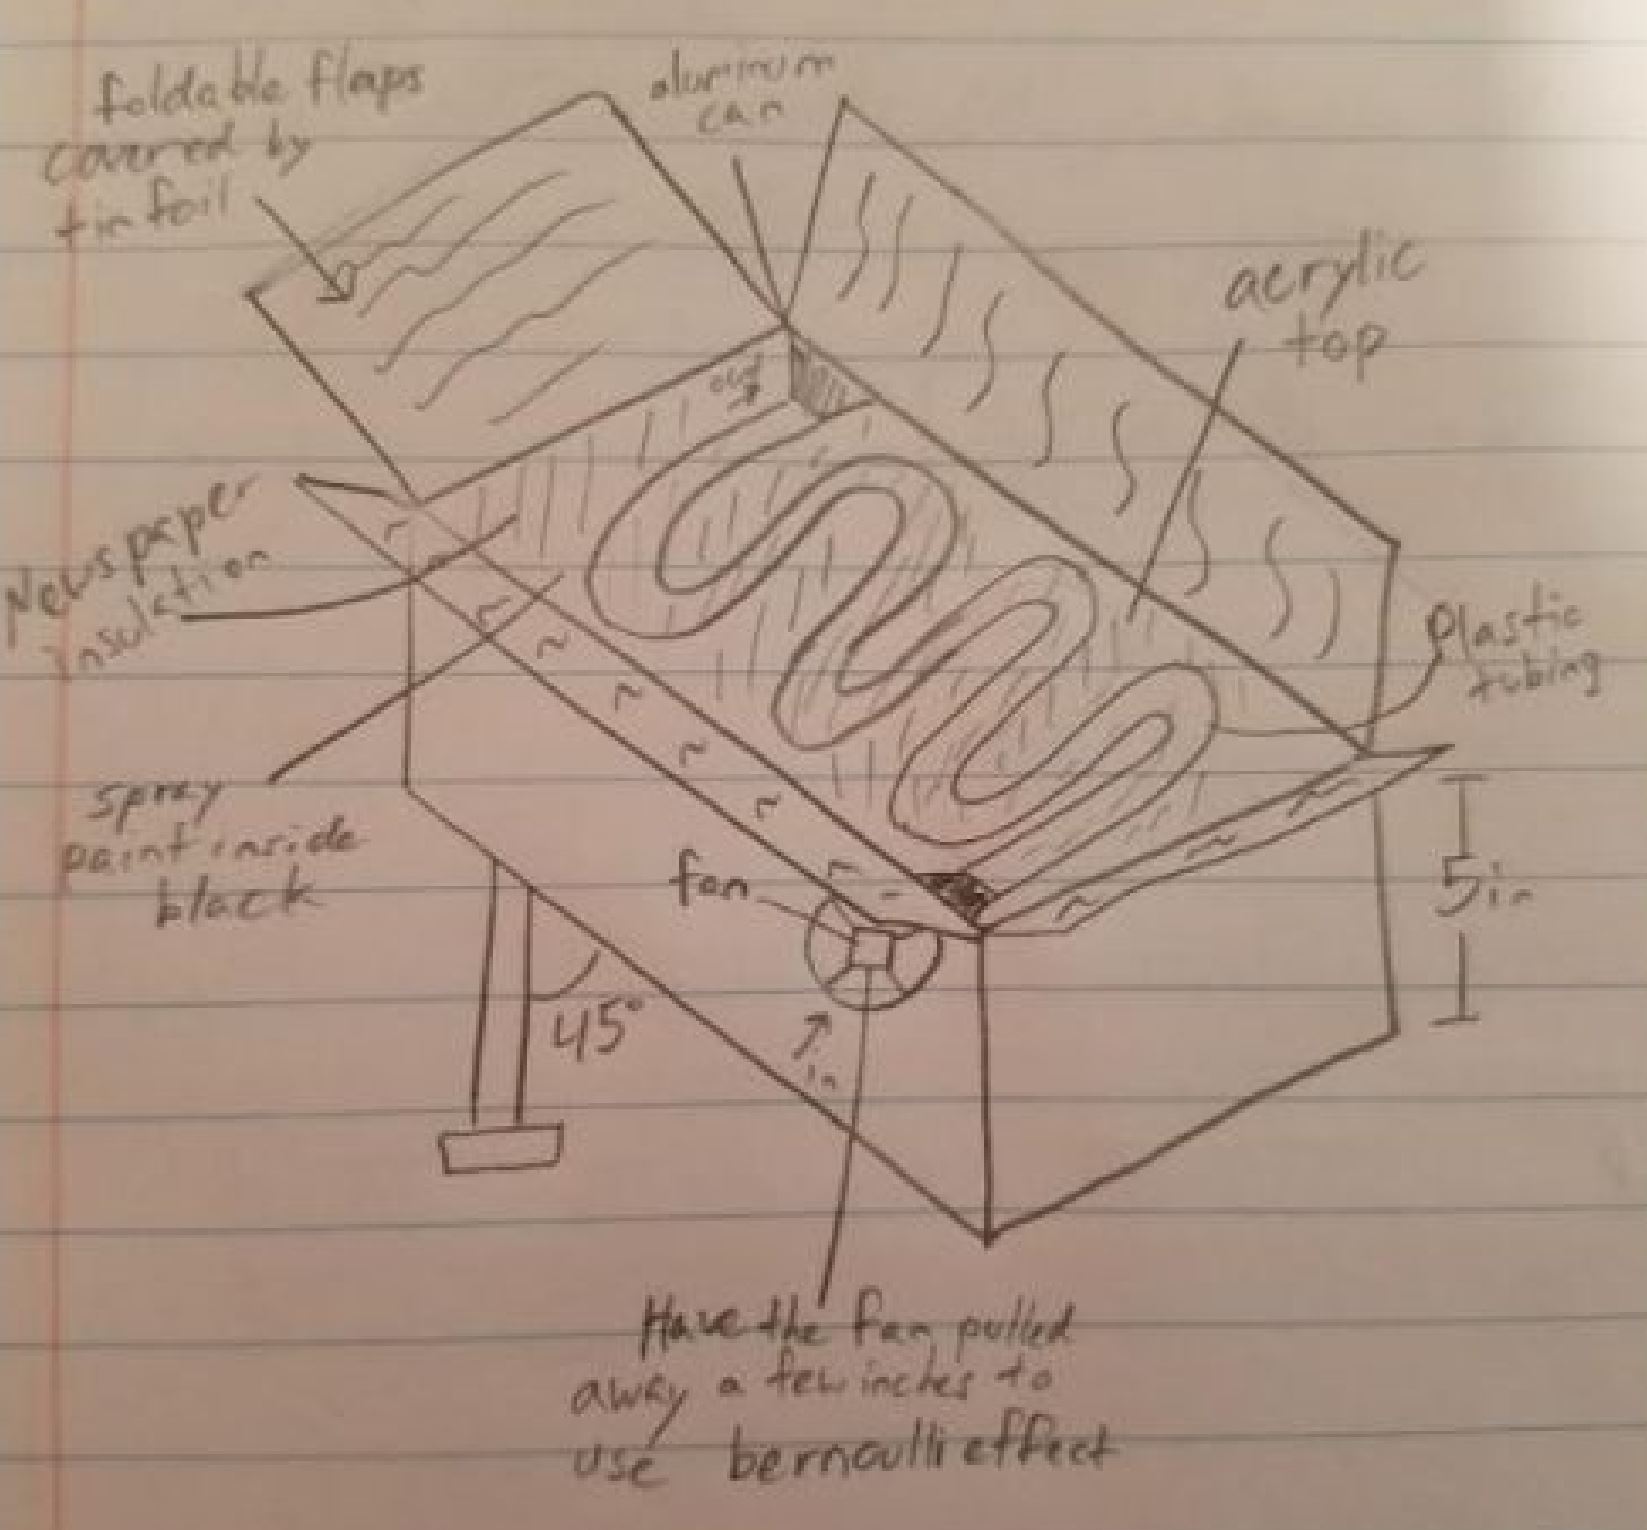 foldable flaps
covered by
tin foil
aluminum
can
acrylic
top
out
Newspaper
insulation
Plastic
tubing
spray
paint inside
black
fan
5in
45°
in
Have the fan pulled
away a few inches to
use bernoulli effect